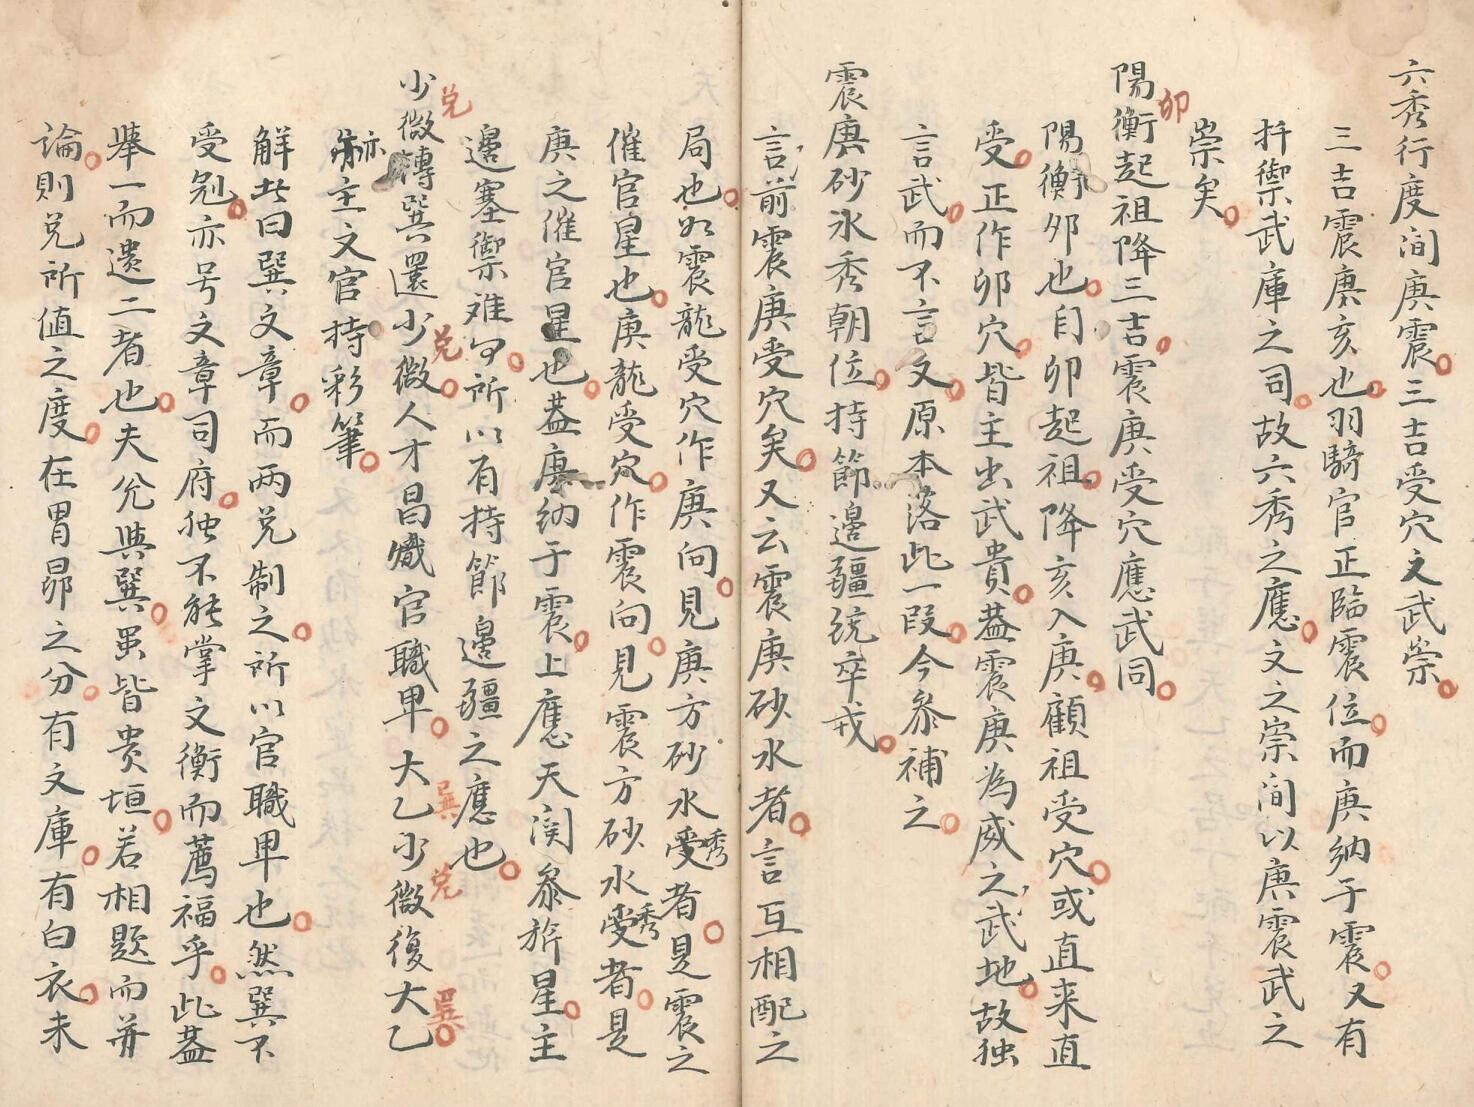 六秀行度洵庚震三吉受穴文武崇
三吉震庚亥也羽騎官正臨震位而庚納于震又有
扞禦武庫之司故六秀之應文之崇洵以庚震武之
崇矣
陽衡卯起祖降三吉震庚受穴應武同
陽衡夘也自卯起祖降亥入庚顧祖受穴或直来直
受正作卯穴皆主出武貴葢震庚為威之武地故独
言武而不言文原本落此一段今叅補之
震庚砂氷秀朝位持節邊疆統卒戎
言前震庚受穴矣又云震庚砂水者言互相配之
局也如震龍受穴作庚向見庚方砂水受秀者是震之
催官星也庚龍受穴作震向見震方砂水受秀者是
庚之催官星也葢庚納于震上應天関叅旂星主
邊塞禦难夘所以有持節邊疆之應也
少微兑轉巽還少微兑人才昌熾官職卑大乙巽少微兑復大乙巽
亦主文官持彩筆
解此曰巽文章而两兑制之所以官職卑也然巽不
受剋亦号文章司府独不能掌文衡而薦福乎此葢
舉一而遗二者也夫兊與巽虽皆贵垣若相題而并
論則兑所值之度在胃昴之分有文庫有白衣未